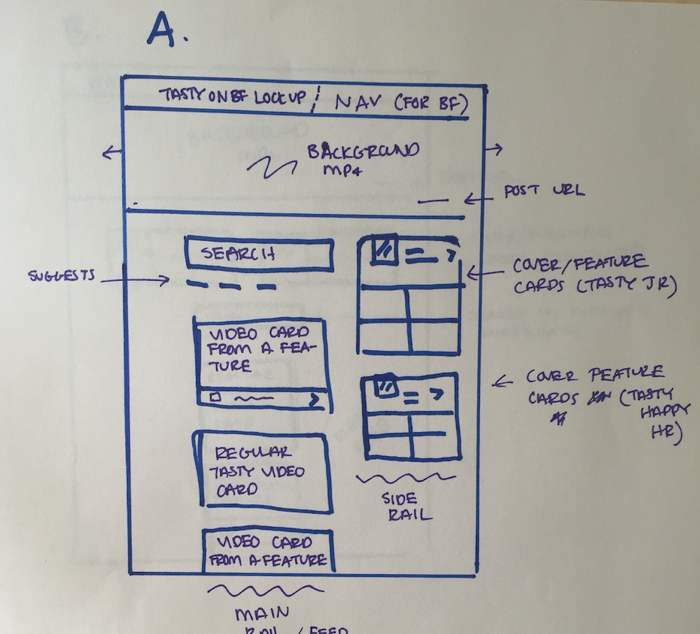 A.
TASTY ON BF LOCKUP / NAV (FOR BF)
BACKGROUND
MP4
POST URL
SEARCH
SUGGESTS
COVER/FEATURE
CARDS (TASTY JR)
VIDEO CARD
FROM A FEA-
TURE
COVER FEATURE
CARDS (TASTY
HAPPY
HR)
REGULAR
TASTY VIDEO
CARD
SIDE
RAIL
VIDEO CARD
FROM A FEATURE
MAIN
RAIL / FEED